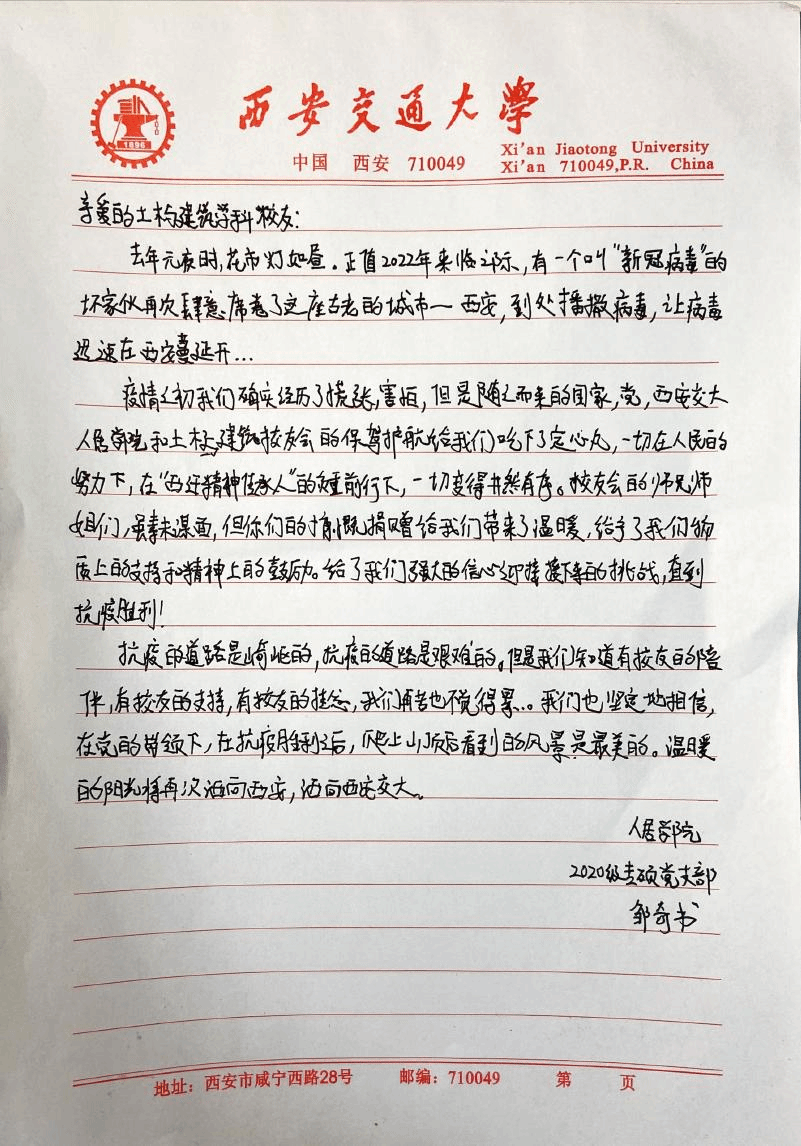 西安交通大学
1896
中国 西安 710049
Xi'an Jiaotong University
Xi'an 710049,P.R. China
亲爱的土构建筑学科校友:
去年元夜时,花市灯如昼。正值2022年来临之际,有一个叫“新冠病毒”的
坏家伙再次肆意席卷了这座古老的城市—西安,到处播撒病毒,让病毒
迅速在西安蔓延开...
疫情之初我们确实经历了慌张,害怕,但是随之而来的国家,党,西安交大
人居学院和土构建筑校友会的保驾护航给我们吃下了定心丸,一切在人民的
努力下,在“西迁精神传承人”的负重前行下,一切变得井然有序。校友会的师兄师
姐们,虽素未谋面,但你们的慷慨捐赠给我们带来了温暖,给予了我们物
质上的支持和精神上的鼓励。给了我们强大的信心迎接接下来的挑战,直到
抗疫胜利!
抗疫的道路是崎岖的,抗疫的道路是艰难的。但是我们知道有校友的陪
伴,有校友的支持,有校友的挂念,我们再苦也不觉得累...。我们也坚定地相信,
在党的带领下,在抗疫胜利之后,爬上山顶后看到的风景是最美的。温暖
的阳光将再次洒向西安,洒向西安交大。
人居学院
2020级专硕党支部
邹奇书
地址:西安市咸宁西路28号 邮编:710049 第 页